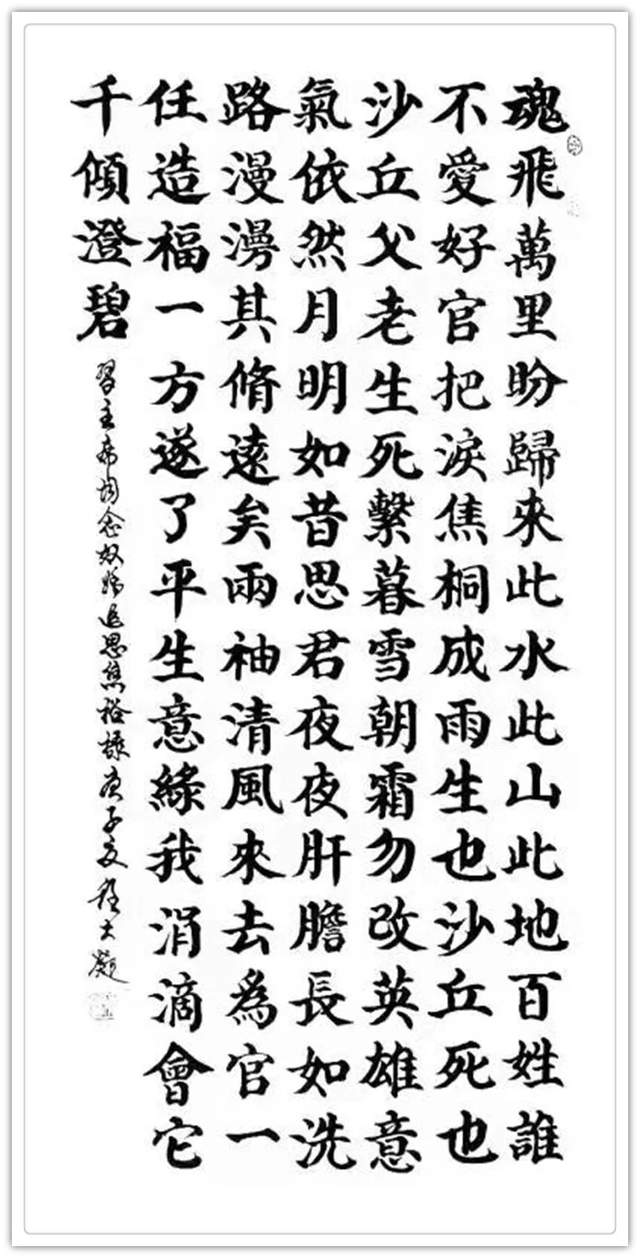 魂飛萬里盼歸來此水此山此地百姓誰
不愛好官把淚焦桐成雨生也沙丘死也
沙丘父老生死繫暮雪朝霜勿改英雄意
氣依然月明如昔思君夜夜肝膽長如洗
路漫漫其脩遠矣兩袖清風來去為官一
任造福一方遂了平生意綠我涓滴會它
千傾澄碧
習主席詞念奴嬌追思焦裕祿庚子夏